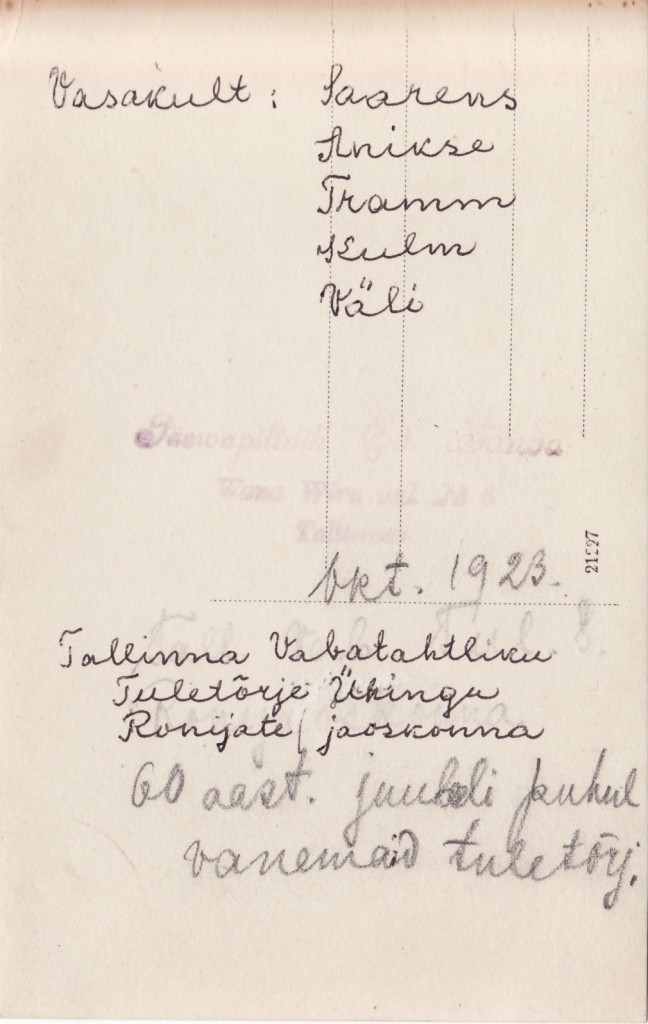 Vasakult: Saarens
Anikse
Tramm
Kulm
Väli
Wana Wiru uul. № 6
Tallinnas
21227
Okt. 1923.
Tallinna Vabatahtliku
Tuletõrje Ühingu
Ronijate jaoskonna
60 aast. juubeli puhul
vanemaid tuletõrj.